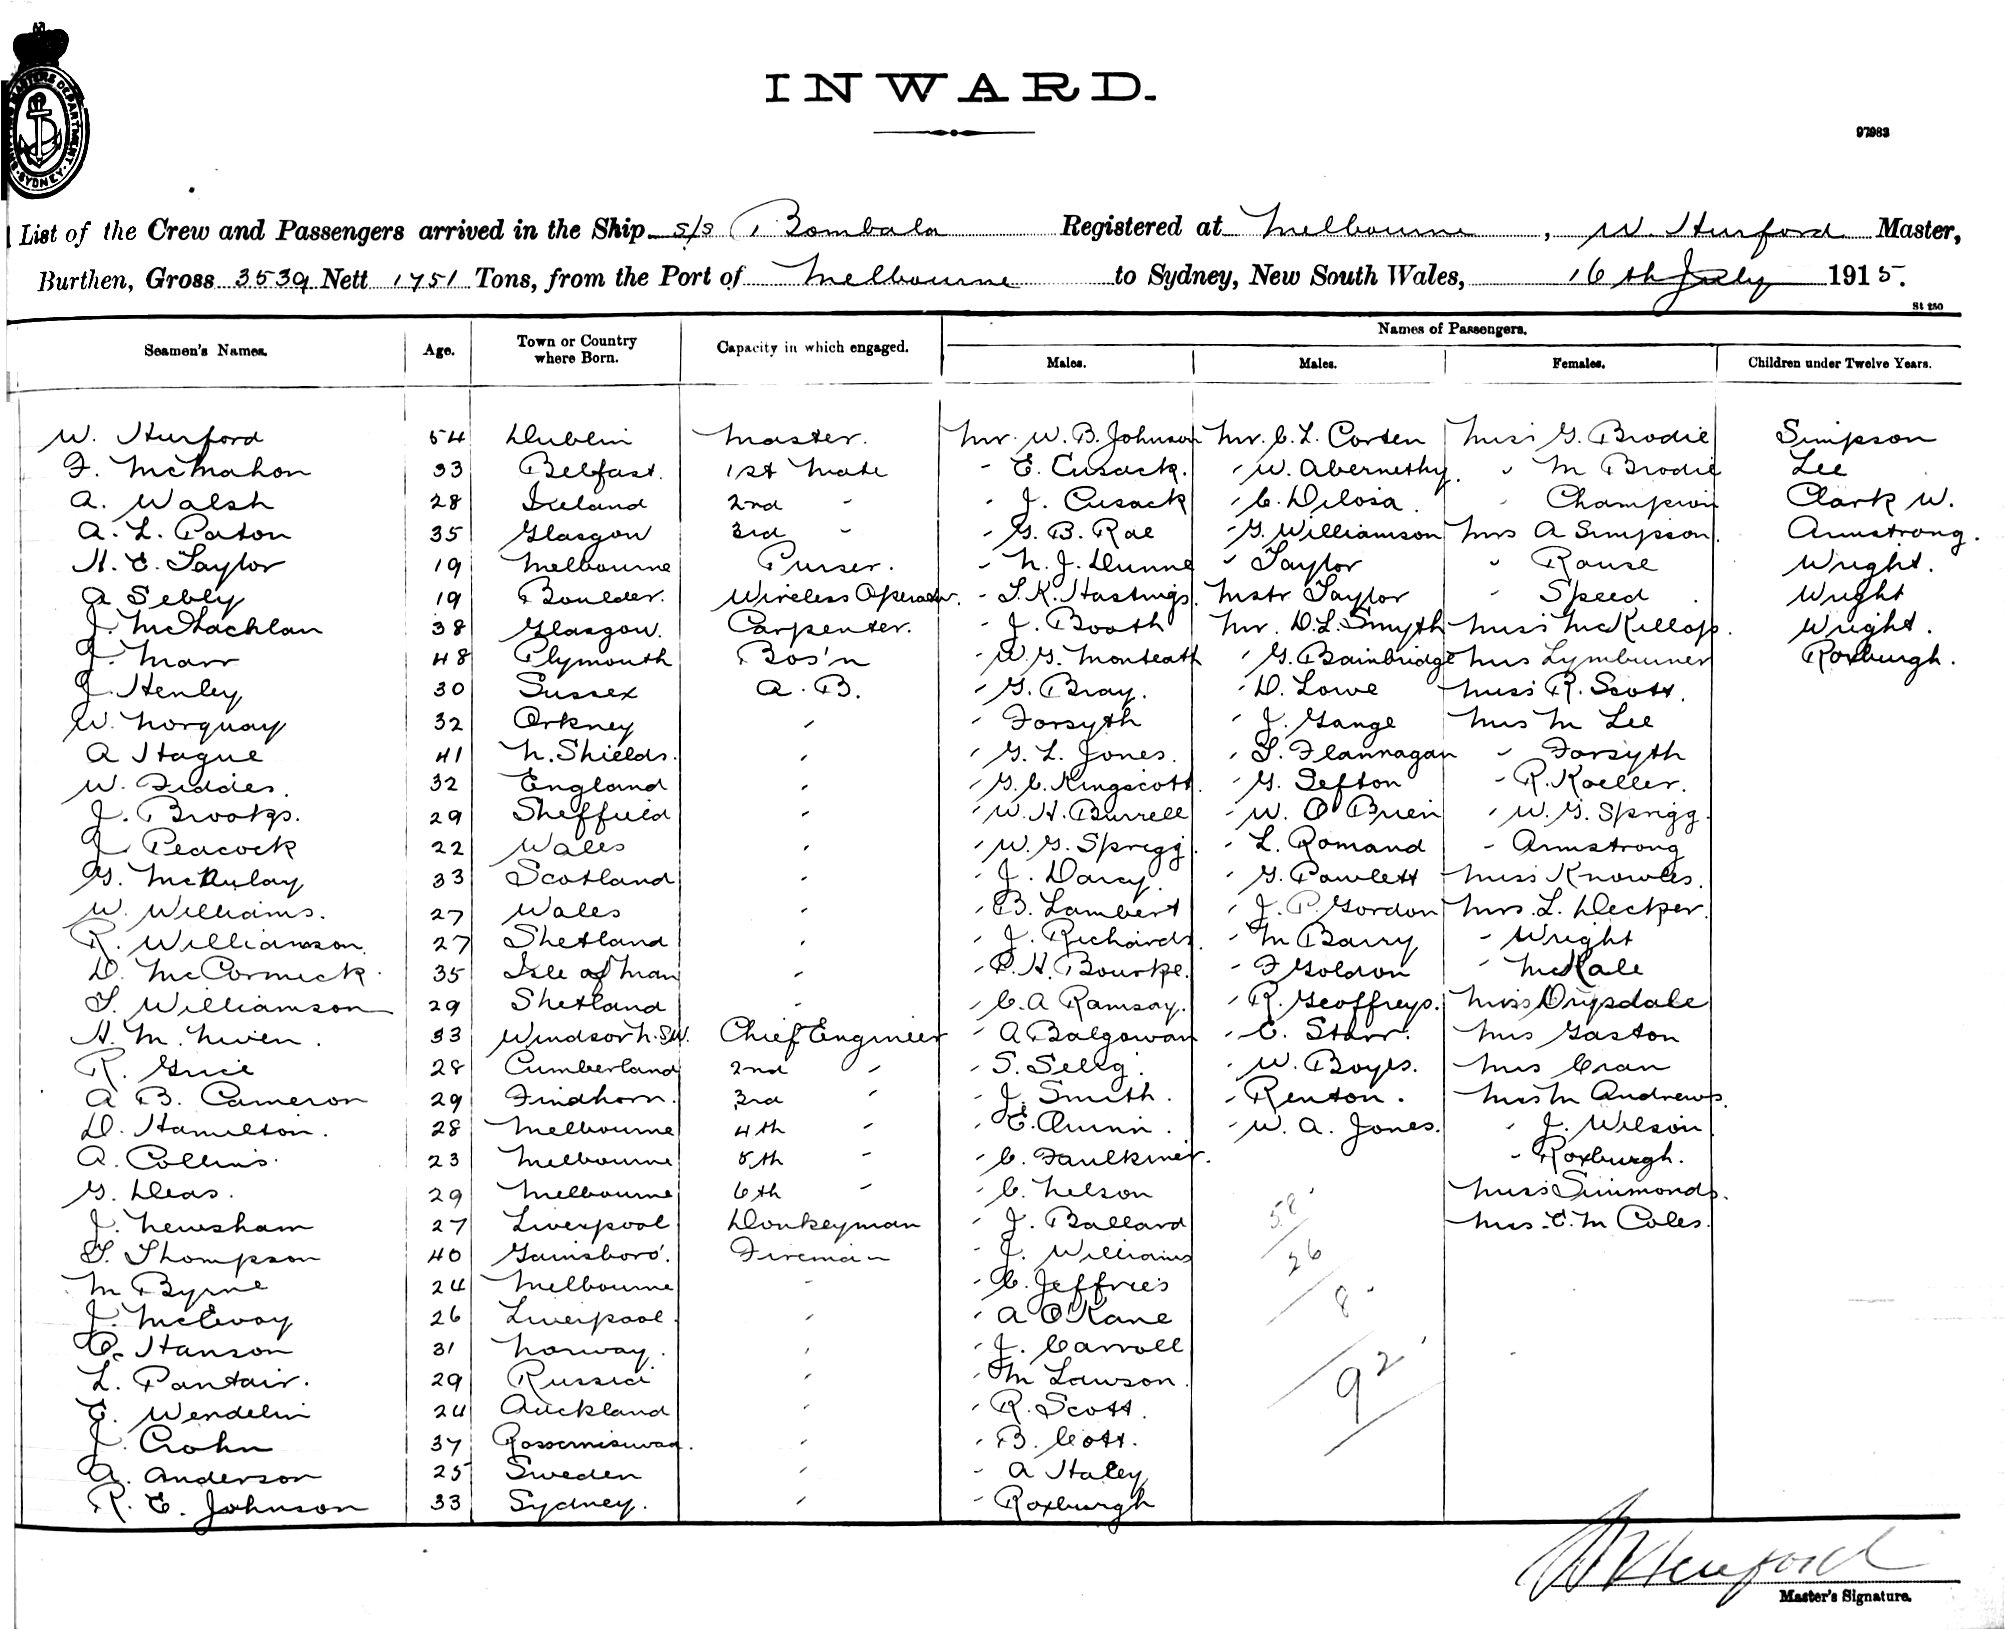 INWARD.
97983
List of the Crew and Passengers arrived in the Ship s/s Bombala Registered at Melbourne, W. Hurford Master,
Burthen, Gross 3539 Nett 1751 Tons, from the Port of Melbourne to Sydney, New South Wales, 16th July 1915.
St 250
Seamen's Names. Age. Town or Country where Born. Capacity in which engaged. Names of Passengers.
Males. Males. Females. Children under Twelve Years.
W. Hurford 54 Dublin Master. Mr. W. B. Johnson Mr. C. L. Corten Miss G. Brodie Simpson
F. McMahon 33 Belfast. 1st Mate " E. Cusack. " W. Abernethy. " M Brodie Lee
A. Walsh 28 Ireland 2nd " " J. Cusack " C. Delosa. " Champion Clark W.
A. L. Paton 35 Glasgow 3rd " " G. B. Rae " G. Williamson Mrs A Simpson. Armstrong.
H. E. Taylor 19 Melbourne Purser. " N. J. Dunne " Taylor " Rouse Wright.
A Sebly 19 Boulder. Wireless Operator. " L. K. Hastings. Mstr Taylor " Speed Wright
J. McLachlan 38 Glasgow. Carpenter. " J. Booth Mr. D. L. Smyth Miss McKillop. Wright.
J. Marr 48 Plymouth Bos'n " W. G. Monteath " G. Bainbridge Mrs Lymburner Roxburgh.
J. Henley 30 Sussex A. B. " G. Bray. " D. Lowe Miss R. Scott.
W. Norquay 32 Orkney " " Forsyth " J. Gange Mrs M Lee
A Hague 41 N. Shields. " " G. L. Jones. " T. Flannagan " Forsyth
W. Fiddes. 32 England " " G. C. Kingscott. " G. Sefton " R. Koeller.
J. Brooks. 29 Sheffield " " W. H. Burrell " W. O'Brien " W. G. Sprigg.
J. Peacock 22 Wales " " W. G. Sprigg. " L. Romand " Armstrong
G. McAulay 33 Scotland " " J. Darcy. " G. Pawlett Miss Knowles.
W. Williams. 27 Wales " " B. Lambert " J. P. Gordon Mrs. L. Decker.
R. Williamson. 27 Shetland " " J. Richards. " M Barry " Wright
D. McCormick. 35 Isle of Man " " P. H. Bourke. " F Goldon " McKale
T. Williamson 29 Shetland " " C. A Ramsay. " R. Geoffreys. Miss Drysdale
H. M. Niven. 33 Windsor N.S.W. Chief Engineer " A Balgowan " C. Starr. Mrs Gaston
R. Grice 28 Cumberland 2nd " " S. Selig. " W. Boyes. Mrs Cran
A B. Cameron 29 Findhorn. 3rd " " J. Smith. " Renton. Mrs M Andrews.
D. Hamilton. 28 Melbourne 4th " " E. Quinn. " W. A. Jones. " J. Wilson
A. Collins. 23 Melbourne 5th " " C. Faulkiner. " Roxburgh.
G. Deas. 29 Melbourne 6th " " C. Nelson 58 Miss Simmonds.
J. Newsham 27 Liverpool Donkeyman " J. Ballard Mrs. E. M Coles.
T. Thompson 40 Gainsboro'. Fireman " J. Williams 26
M Byrne 24 Melbourne " " C. Jeffries
J. McEvoy 26 Liverpool. " " A O'Kane 8
C. Hanson 31 Norway. " " J. Carroll
L. Pantair. 29 Russia " " M Lawson. 92
E. Wendelin 24 Auckland " " R. Scott.
J. Crohn 37 " " B. Cott.
A. Anderson 25 Sweden " " A Haley
R. E. Johnson 33 Sydney. " " Roxburgh
W Hurford
Master's Signature.